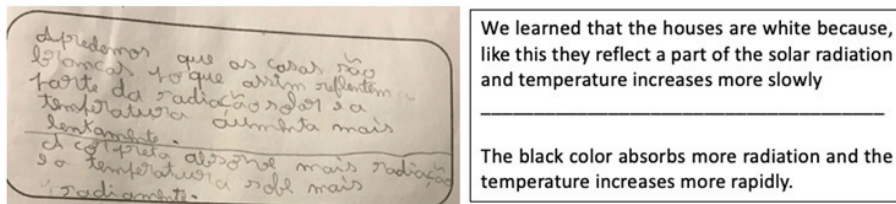 Apredemos que as casas são
brancas poque assim reflentem a
parte da radiação solar e a
temperatura aumenta mais
lentamente.
A cor preta absorve mais radiação
e a temperatura sobe mais
radiamente.
We learned that the houses are white because,
like this they reflect a part of the solar radiation
and temperature increases more slowly
The black color absorbs more radiation and the
temperature increases more rapidly.